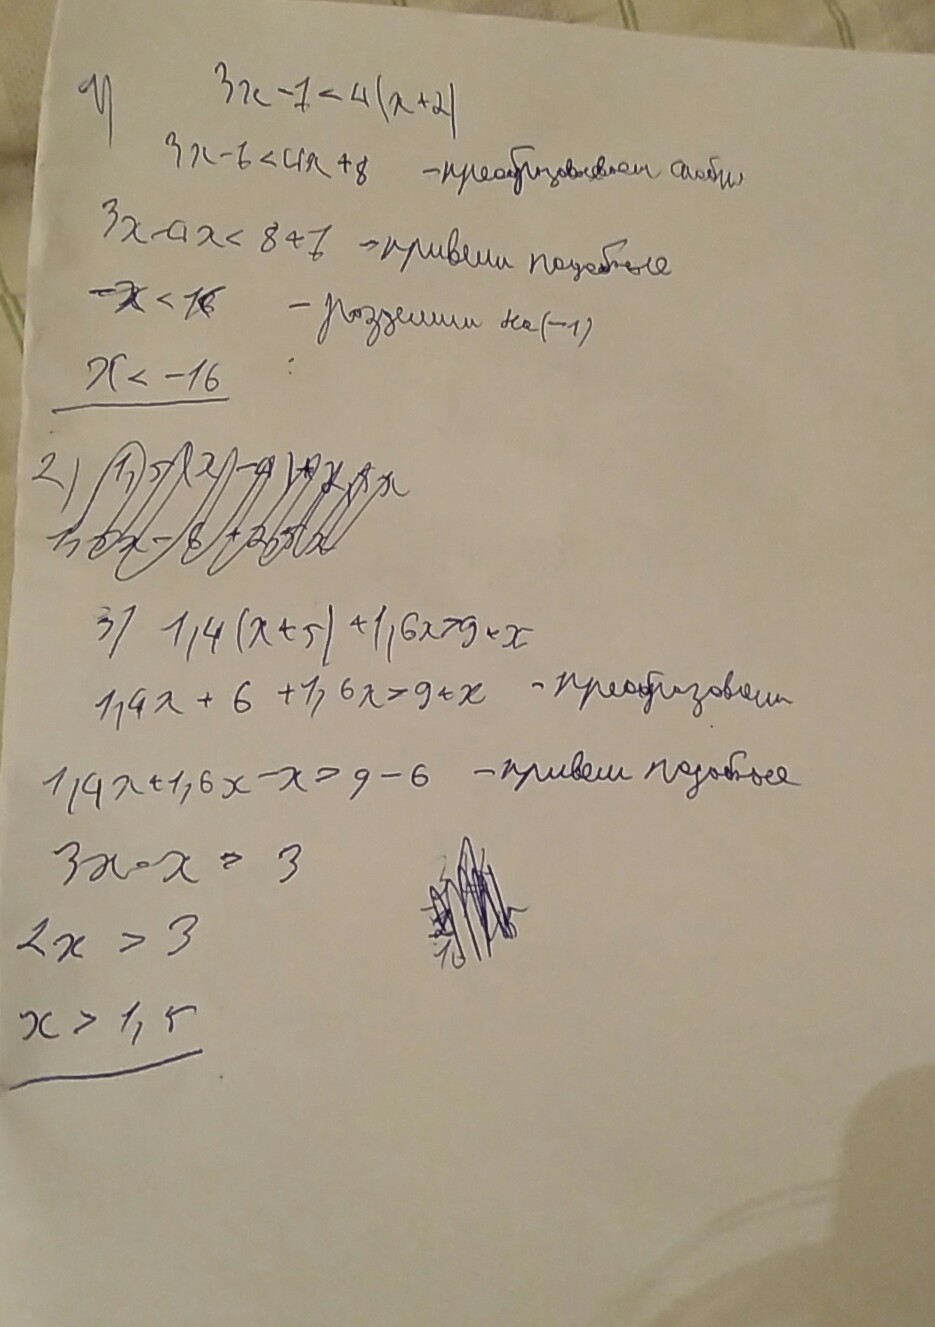 1) 3x-7<4(x+2)
3x-7<4x+8 - преобразовываем скобки
3x-4x<8+7 - привели подобные
-x<16 - разделили на (-1)
x<-16
2)
3) 1,4(x+5)+1,6x>9+x
1,4x+6+1,6x>9+x - преобразовали
1,4x+1,6x-x>9-6 - привели подобные
3x-x>3
2x>3
x>1,5